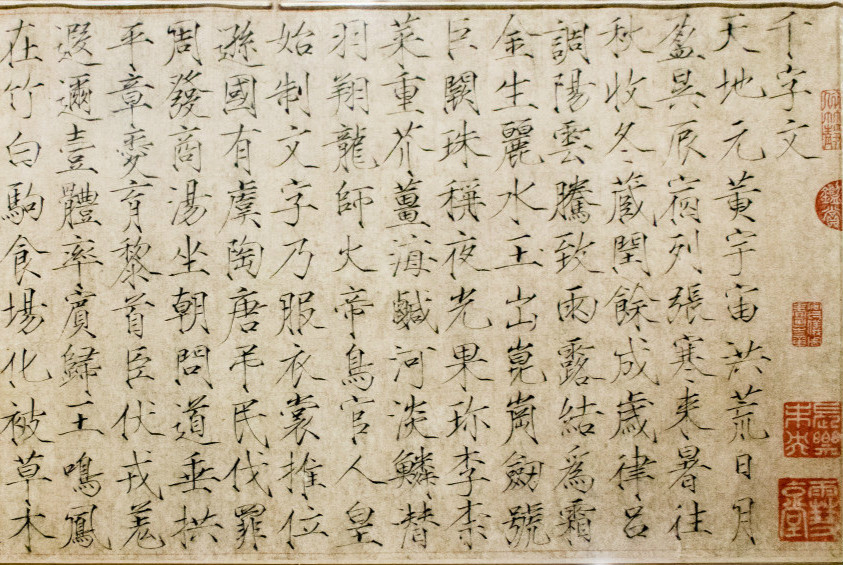 千字文
天地元黃宇宙洪荒日月
盈昃辰宿列張寒來暑往
秋收冬藏閏餘成歲律呂
調陽雲騰致雨露結爲霜
金生麗水玉出崑崗劒號
巨闕珠稱夜光果珍李柰
菜重芥薑海鹹河淡鱗潛
羽翔龍師火帝鳥官人皇
始制文字乃服衣裳推位
遜國有虞陶唐弔民伐罪
周發商湯坐朝問道垂拱
平章愛育黎首臣伏戎羌
遐邇壹體率賓歸王鳴鳳
在竹白駒食場化被草木
鑑賞
長樂
未央